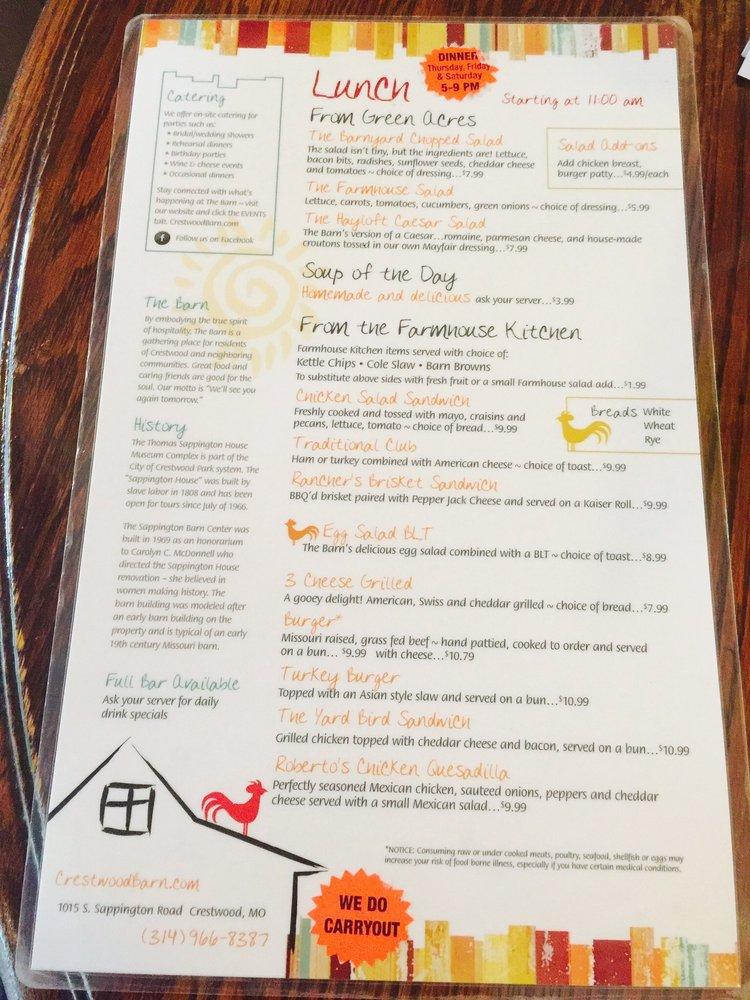 Lunch
DINNER
Thursday, Friday
& Saturday
5-9 PM
Starting at 11:00 am
Catering
We offer on-site catering for
parties such as:
• Bridal/wedding showers
• Rehearsal dinners
• Birthday parties
• Wine & cheese events
• Occasional dinners
Stay connected with what's
happening at The Barn ~ visit
our website and click the EVENTS
tab. CrestwoodBarn.com
f Follow us on Facebook
The Barn
By embodying the true spirit
of hospitality, The Barn is a
gathering place for residents
of Crestwood and neighboring
communities. Great food and
caring friends are good for the
soul. Our motto is "we'll see you
again tomorrow."
History
The Thomas Sappington House
Museum Complex is part of the
City of Crestwood Park system. The
"Sappington House" was built by
slave labor in 1808 and has been
open for tours since July of 1966.
The Sappington Barn Center was
built in 1969 as an honorarium
to Carolyn C. McDonnell who
directed the Sappington House
renovation – she believed in
women making history. The
barn building was modeled after
an early barn building on the
property and is typical of an early
19th century Missouri barn.
Full Bar Available
Ask your server for daily
drink specials
CrestwoodBarn.com
1015 S. Sappington Road Crestwood, MO
(314)966-8387
From Green Acres
The Barnyard Chopped Salad
The salad isn't tiny, but the ingredients are! Lettuce,
bacon bits, radishes, sunflower seeds, cheddar cheese
and tomatoes ~ choice of dressing...$7.99
Salad Add-ons
Add chicken breast,
burger patty...$4.99/each
The Farmhouse Salad
Lettuce, carrots, tomatoes, cucumbers, green onions ~ choice of dressing...$5.99
The Hayloft Caesar Salad
The Barn's version of a Caesar...romaine, parmesan cheese, and house-made
croutons tossed in our own Mayfair dressing...$7.99
Soup of the Day
Homemade and delicious ask your server...$3.99
From the Farmhouse Kitchen
Farmhouse Kitchen items served with choice of:
Kettle Chips • Cole Slaw • Barn Browns
To substitute above sides with fresh fruit or a small Farmhouse salad add...$1.99
Chicken Salad Sandwich
Freshly cooked and tossed with mayo, craisins and
pecans, lettuce, tomato ~ choice of bread...$9.99
Breads White
Wheat
Rye
Traditional Club
Ham or turkey combined with American cheese ~ choice of toast...$9.99
Rancher's Brisket Sandwich
BBQ'd brisket paired with Pepper Jack Cheese and served on a Kaiser Roll...$9.99
Egg Salad BLT
The Barn's delicious egg salad combined with a BLT ~ choice of toast...$8.99
3 Cheese Grilled
A gooey delight! American, Swiss and cheddar grilled ~ choice of bread...$7.99
Burger*
Missouri raised, grass fed beef ~ hand pattied, cooked to order and served
on a bun... $9.99 with cheese...$10.79
Turkey Burger
Topped with an Asian style slaw and served on a bun...$10.99
The Yard Bird Sandwich
Grilled chicken topped with cheddar cheese and bacon, served on a bun...$10.99
Roberto's Chicken Quesadilla
Perfectly seasoned Mexican chicken, sauteed onions, peppers and cheddar
cheese served with a small Mexican salad...$9.99
*NOTICE: Consuming raw or under cooked meats, poultry, seafood, shellfish or eggs may
increase your risk of food borne illness, especially if you have certain medical conditions.
WE DO
CARRYOUT